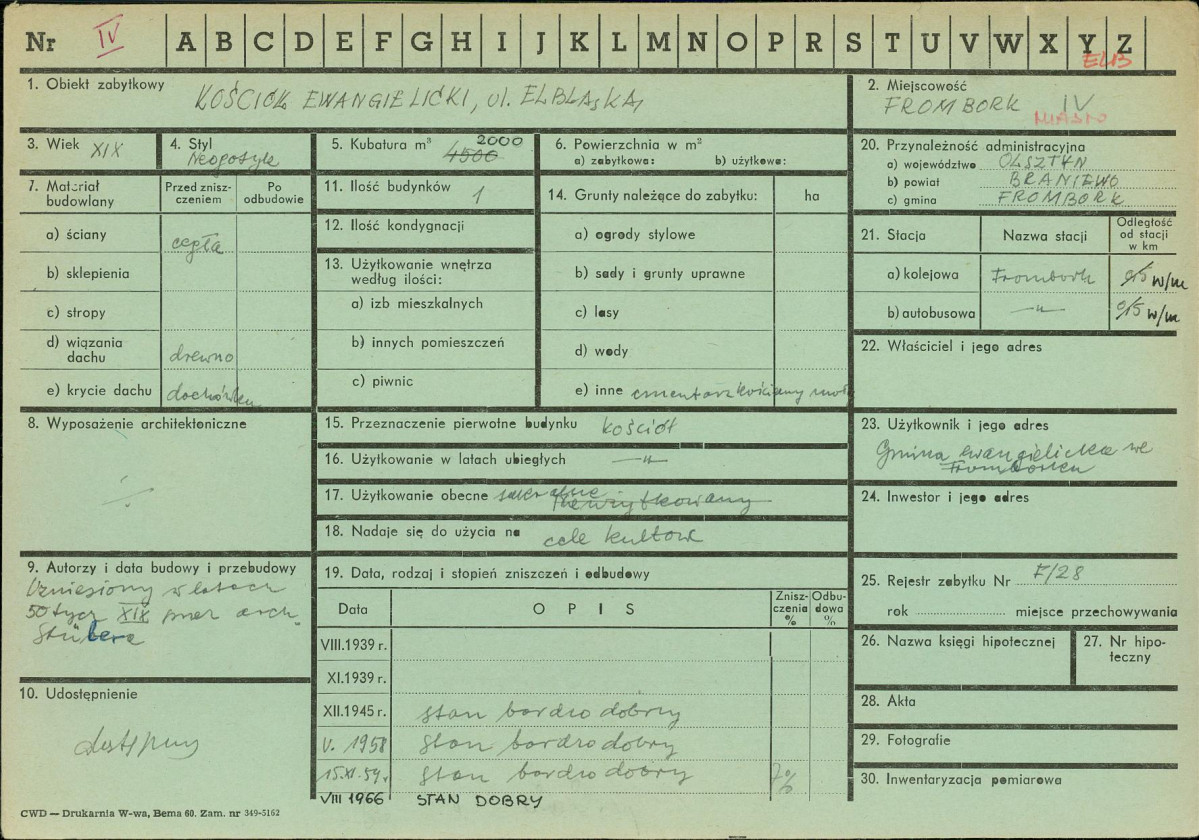 Nr IV A B C D E F G H I J K L M N O P R S T U V W X Y Z
ELB
1. Obiekt zabytkowy
KOŚCIÓŁ EWANGIELICKI, ul. ELBLĄSKA,
2. Miejscowość
FROMBORK IV
MIASTO
3. Wiek XIX
4. Styl
Neogotyk
5. Kubatura m³ 2000
4500
6. Powierzchnia w m²
a) zabytkowa: b) użytkowa:
20. Przynależność administracyjna
a) województwo OLSZTYN
b) powiat BRANIEWO
c) gmina FROMBORK
7. Materiał budowlany
Przed znisz-
czeniem
Po
odbudowie
a) ściany cegła
b) sklepienia
c) stropy
d) wiązania
dachu drewno
e) krycie dachu dachówka
11. Ilość budynków 1
12. Ilość kondygnacji
13. Użytkowanie wnętrza
według ilości:
a) izb mieszkalnych
b) innych pomieszczeń
c) piwnic
14. Grunty należące do zabytku: ha
a) ogrody stylowe
b) sady i grunty uprawne
c) lasy
d) wody
e) inne cmentarz
21. Stacja
Nazwa stacji
Odległość
od stacji
w km
a) kolejowa Frombork 0,5 w/m
b) autobusowa —"— 0,5 w/m
22. Właściciel i jego adres
8. Wyposażenie architektoniczne
15. Przeznaczenie pierwotne budynku kościół
16. Użytkowanie w latach ubiegłych —"—
17. Użytkowanie obecne sakralne nieużytkowany
18. Nadaje się do użycia na cele kultowe
23. Użytkownik i jego adres
Gmina ewangielicka we
Fromborku
24. Inwestor i jego adres
9. Autorzy i data budowy i przebudowy
Wzniesiony w latach
50 tych XIX przez arch.
Stülera
10. Udostępnienie
dostępny
19. Data, rodzaj i stopień zniszczeń i odbudowy
Data OPIS
Znisz-
czenia
%
Odbu-
dowa
%
VIII.1939 r.
XI.1939 r.
XII.1945 r. stan bardzo dobry
V. 1958 stan bardzo dobry
15.XI.59 r. stan bardzo dobry 7%
VIII 1966 STAN DOBRY
25. Rejestr zabytku Nr F/28
rok miejsce przechowywania
26. Nazwa księgi hipotecznej
27. Nr hipo-
teczny
28. Akta
29. Fotografie
30. Inwentaryzacja pomiarowa
CWD — Drukarnia W-wa, Bema 60. Zam. nr 349-5162